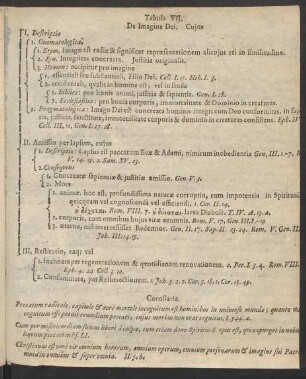 Tabula VII.
De Imagine Dei. Cujus
I. Descriptio
1. Onomatologica.
1. Etym. Imago est radix & significat representationem alicujus rei in similitudine.
2. Syn. Integritas concreata. Justitia originalis.
3. Homon: accipitur pro imagine
1. essentiali seu substantiali, Filio Dei. Coll. I. 15. Heb. I. 3.
2. accidentali, qualis in homine est, vel in studio
1. Biblico: pro bonis animi, justitiæ & sapientiæ. Gen. I. 28.
2. Ecclesiastico: pro bonis corporis, immortalitate & Dominio in creaturas.
2. Pragmatologica: Imago Dei est concreata hominis integri cum Deo conformitas, in sapientia, justitia, sanctitate, immortalitate corporis & dominio in creaturas consistens. Eph. IV
Coll. III, 10. Gen. I. 27. 28.
II. Amissio per lapsum, cujus
1. Descriptio: Lapsus est peccatum Evæ & Adami, nimirum inobedientia Gen. III. 1.
V. 14. 19. 1. Sam. XV. 23.
2. Consequens
1. Concreatæ sapientiæ & justitiæ amissio. Gen. V. 3.
2. Mors
1. animæ. hoc est, profundissima naturæ corruptio, cum impotentia in Spiritualibus
quicquam vel cognoscendi vel efficiendi. 1. Cor. II. 14.
Rom. VIII. 7. Jarva Diaboli. T. IV. A. 13. a.
2. corporis, cum omnibus hujus vitæ ærumnis. Rom. V. 17. Gen. III. 17
3. æterna, nisi credentes Redemtor. Gen. II. 17. Sap. II. 23. 24. Rom. V. Gen. III
Joh. III. 14. 15.
III. Restitutio, eaq; vel
1. Inchoata per regenerationem & quotidianam renovationem. 2. Pet. I. 3. 4. Rom. VIII.
Eph. 4. 24 Coll. 3. 10.
2. Consummata, per Resurrectionem. 1. Joh. 3. 2. 1. Cor. 3. 18. 1. Cor. 15. 49.
Corollaria.
Peccatum radicale, capitale & verè mortale incognitum est hominibus in universo mundo; quanto magis
cognitum est potuit remedium peccati, cujus morbus tum erat cognitus. 1. 544. a.
Cum per misericordiam simus liberi à culpa, tum etiam dono Spiritus S. opus est, qui expurget in nobis
liquias peccati in Psf. LI.
Christianus est verè vir omnium horarum, omnium operum, omnium personarum & imagine sui Patris
mundi omnium & super omnia. II. 518.